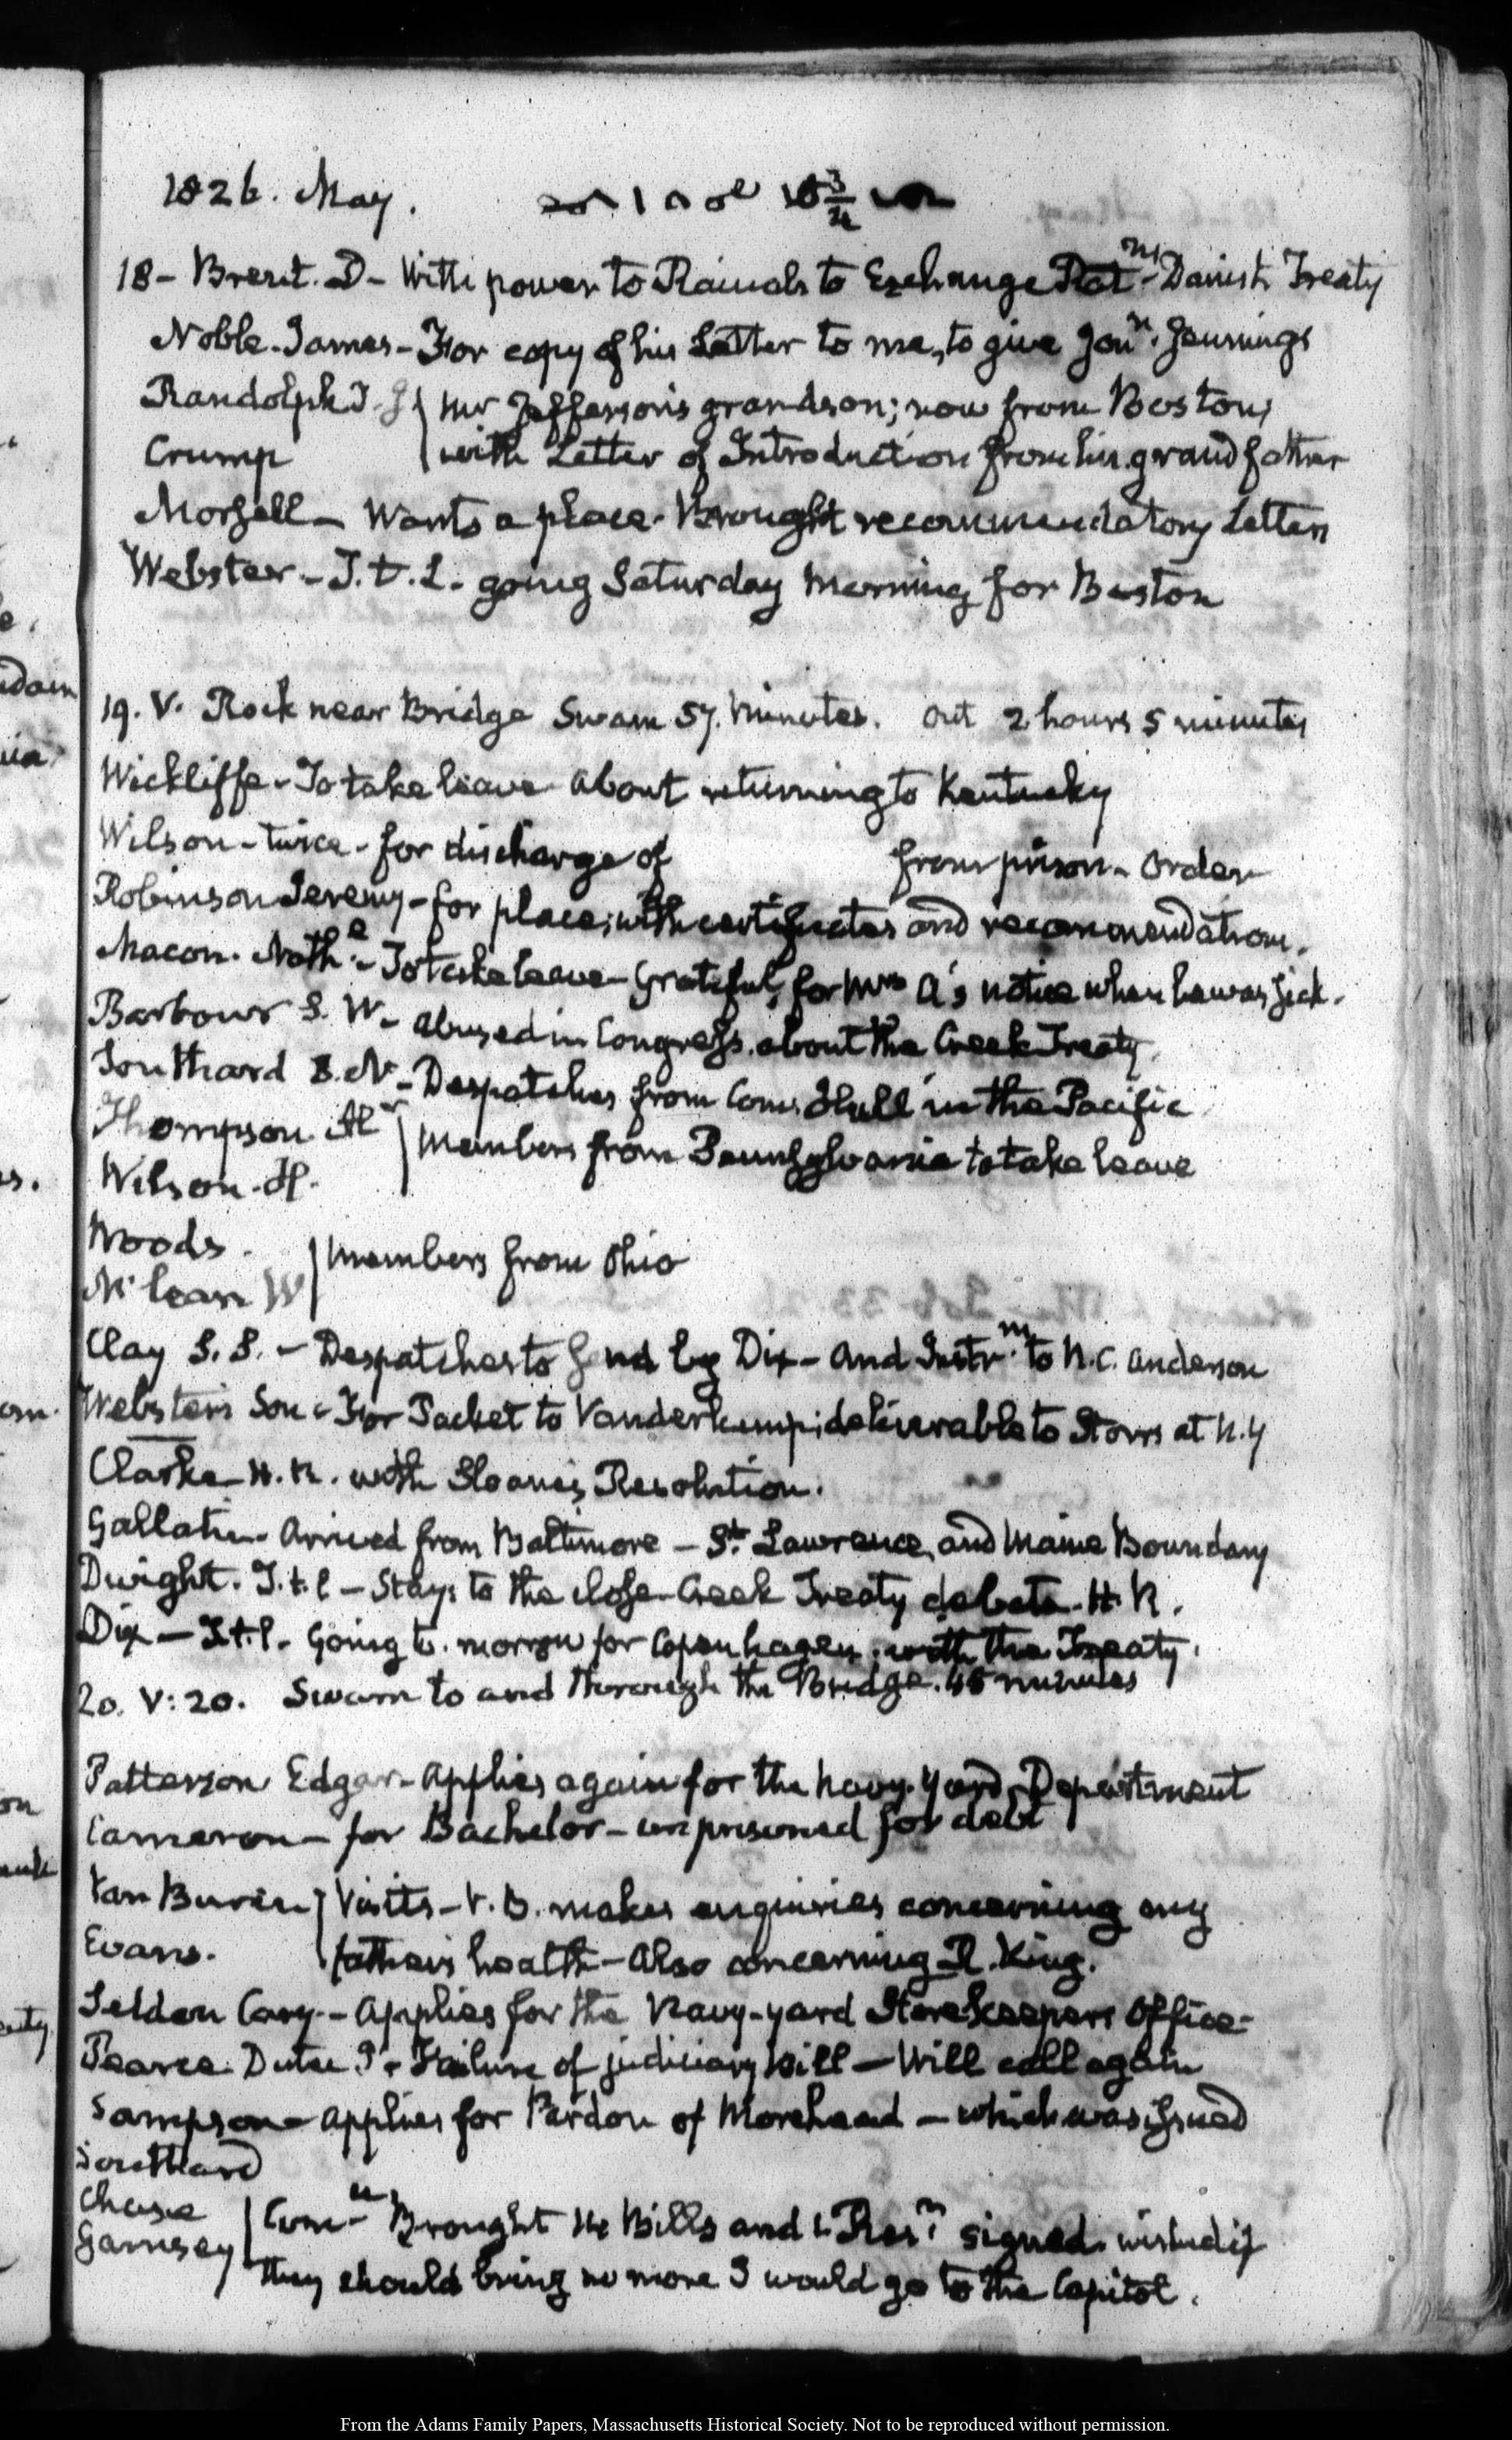 1826. May.
18 - Brent. D - With power to Raimals to Exchange Rat.ns - Danish Treaty
Noble. James - For copy of his Letter to me, to give Jon.n Jennings
Randolph T. J Mr Jefferson's grandson; now from Boston,
Crump with Letter of Introduction from his grandfather
Morsell - Wants a place - Brought recommendatory Letters
Webster - T. t. L. going Saturday Morning for Boston
19. V. Rock near Bridge Swam 57. Minutes. Out 2 hours 5 minutes
Wickliffe - To take leave - About returning to Kentucky
Wilson - twice - for discharge of from prison - Order
Robinson Jeremy - for place; with certificates and recommendations.
Macon. Nath.l - To take leave - Grateful, for Mrs A's notice when he was sick.
Barbour S. W - abused in Congress, about the Creek Treaty
Southard S. N - Despatches from Com. Hull in the Pacific
Thompson Al Members from Pennsylvania to take leave
Wilson. H.
Woods. Members from Ohio
McLean W
Clay S. S. - Despatches to send by Dix - And Instr.ns to R. C. Anderson
Webster's Son - For Packet to Vanderkemp; deliverable to Storrs at N.Y
Clarke H. R. with Sloane's Resolution.
Gallatin - Arrived from Baltimore - St. Lawrence, and Maine Boundary
Dwight. T. t. l - Stays to the close - Creek Treaty debate. H. R.
Dix - T. t. l - Going to morrow for Copenhagen; with the Treaty.
20. V: 20. Swam to and through the Bridge. 45 minutes
Patterson Edgar - Applies again for the Navy-Yard Department
Cameron - for Bachelor - imprisoned for debt
Van Buren Visits - V. B. makes enquiries concerning my
Evans. father's health - Also concerning R. King.
Selden Cary - Applies for the Navy-yard Storekeepers Office -
Pearce Dutee J. - Failure of judiciary bill - Will call again
Sampson - applies for Pardon of Morehead - which was issued
Southard
Chase Com.ee Brought 14 Bills and Res.n signed. wished if
Garnsey they should bring no more I would go to the Capitol.
From the Adams Family Papers, Massachusetts Historical Society. Not to be reproduced without permission.